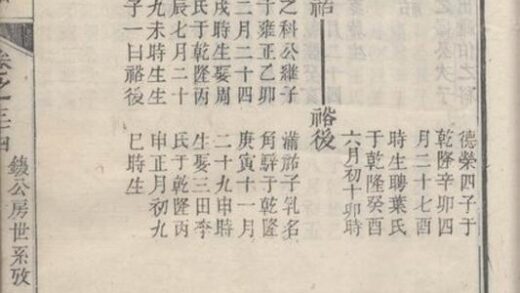 德榮四子于
乾隆辛卯四
月二十七酉
時生聘葉氏
于乾隆癸酉
六月初十卯時
祜
裕後
之科公繼子
于雍正乙卯
二月二十四
戌時生娶周
氏于乾隆丙
辰七月二十
九未時生生
子一曰裕後
蒲祜子乳名
角騂于乾隆
庚寅十一月
二十九申時
生娶三田李
氏于乾隆丙
申正月初九
巳時生
鋑公房世系攷